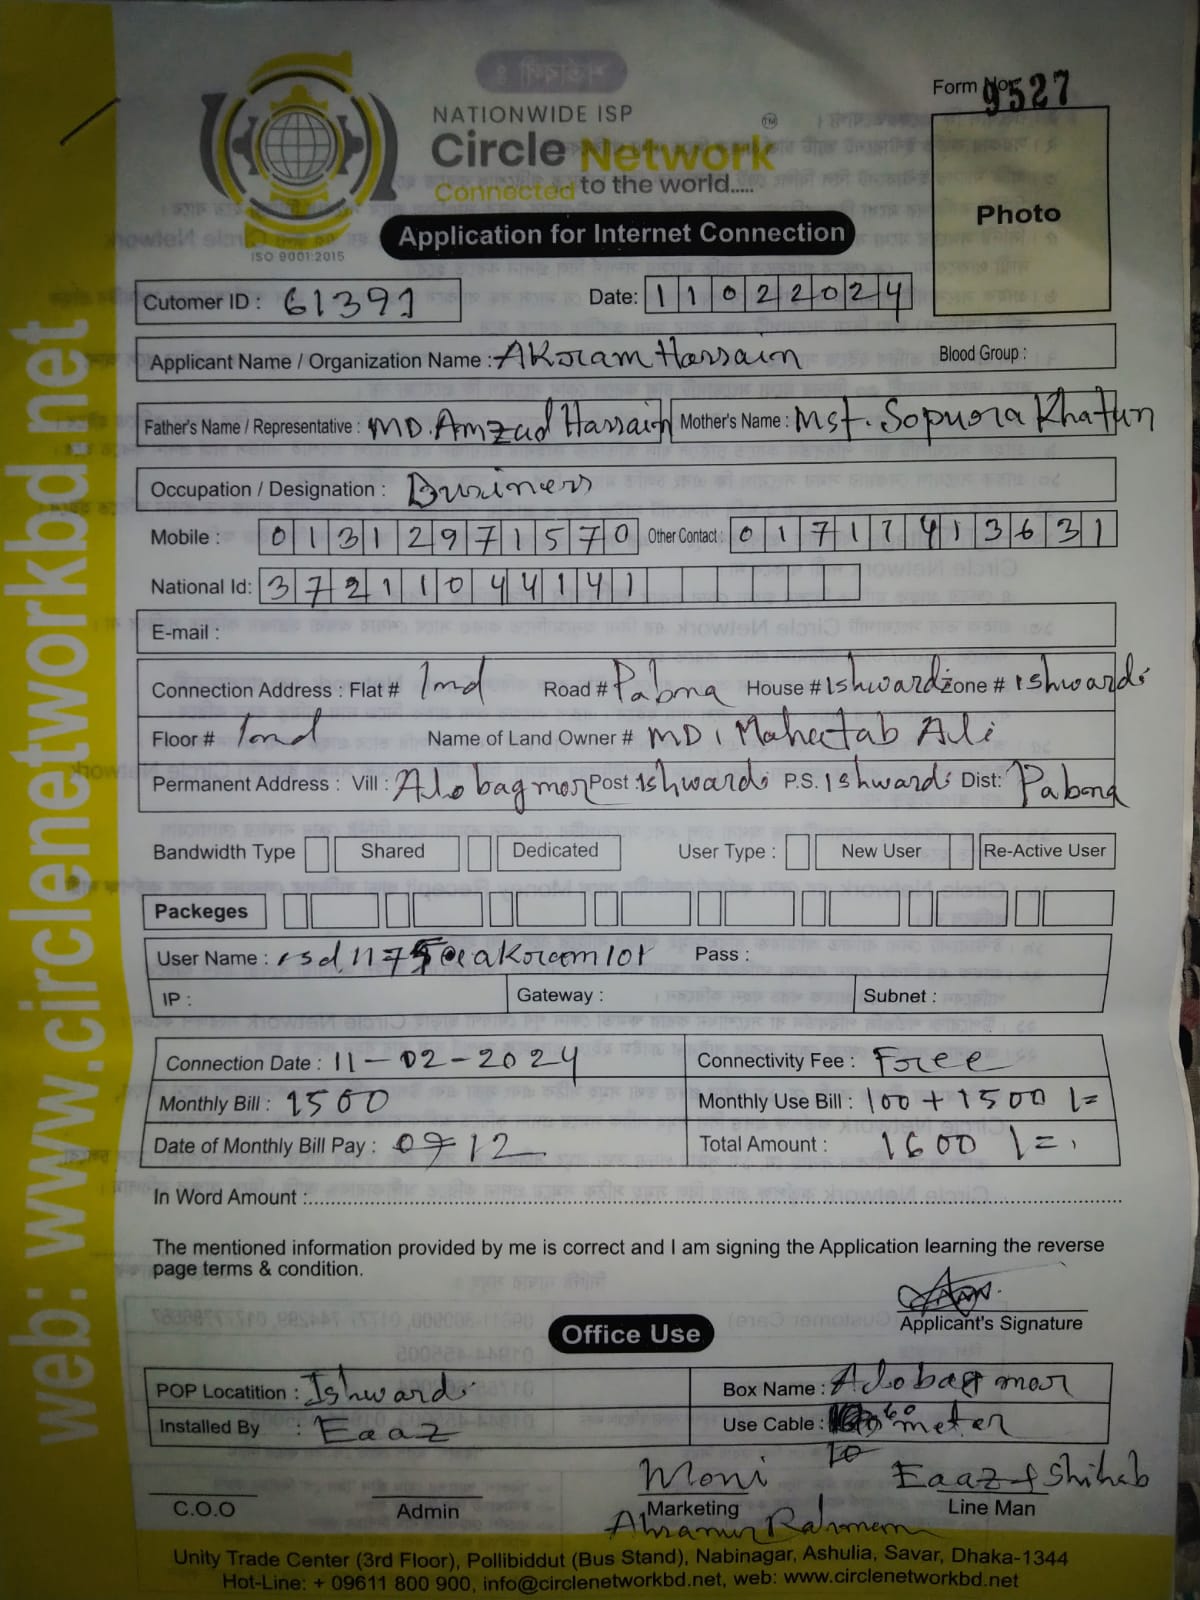 Form No: 9527
NATIONWIDE ISP
Circle Network TM
Connected to the world.....
ISO 9001:2015
Photo
Application for Internet Connection
Cutomer ID : 61391
Date: 11022024
Applicant Name / Organization Name : Akoram Hossain Blood Group :
Father's Name / Representative : MD. Amzad Hossain Mother's Name : Mst. Sopuora Khatun
Occupation / Designation : Business
Mobile : 01312971570 Other Contact : 01717413631
National Id: 3721104414 1
E-mail :
Connection Address : Flat # 1nd Road # Pabna House # Ishwardi Zone # Ishwardi
Floor # 1nd Name of Land Owner # MD. Mahatab Ali
Permanent Address : Vill : Alobagmor Post : Ishwardi P.S. Ishwardi Dist: Pabna
Bandwidth Type Shared Dedicated User Type : New User Re-Active User
Packeges
User Name : Pass :
IP : Gateway : Subnet :
Connection Date : 11-02-2024 Connectivity Fee : Free
Monthly Bill : 1500 Monthly Use Bill : 100 + 1500 /=
Date of Monthly Bill Pay : Total Amount : 1600 /=
In Word Amount :
The mentioned information provided by me is correct and I am signing the Application learning the reverse
page terms & condition.
Applicant's Signature
Office Use
POP Locatition : Ishwardi Box Name : Alobagmor
Installed By : Eaaz Use Cable : 60 meter
Moni Eaaz & Shihab
C.O.O Admin Marketing Line Man
Rahman
Unity Trade Center (3rd Floor), Pollibiddut (Bus Stand), Nabinagar, Ashulia, Savar, Dhaka-1344
Hot-Line: + 09611 800 900, info@circlenetworkbd.net, web: www.circlenetworkbd.net
web: www.circlenetworkbd.net